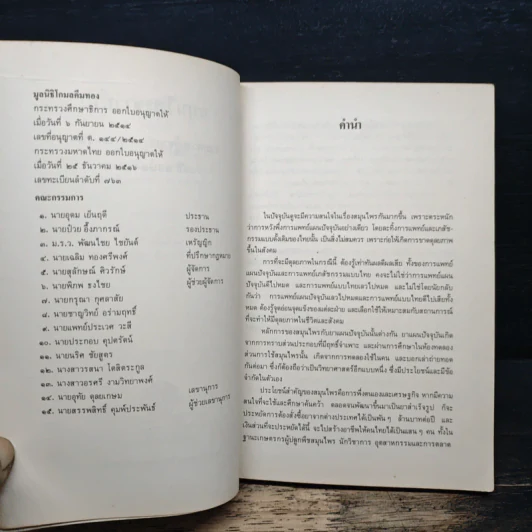 มูลนิธิโกมลคีมทอง
กระทรวงศึกษาธิการ ออกใบอนุญาตให้
เมื่อวันที่ ๖ กันยายน ๒๕๑๔
เลขที่อนุญาตที่ ต. ๑๔๔/๒๕๑๔
กระทรวงมหาดไทย ออกใบอนุญาตให้
เมื่อวันที่ ๒๕ ธันวาคม ๒๕๑๖
เลขทะเบียนลำดับที่ ๗๖๓
คณะกรรมการ
๑. นายอุดม เย็นฤดี ประธาน
๒. นายป๋วย อึ๊งภากรณ์ รองประธาน
๓. ม.ร.ว. พัฒนไชย ไชยันต์ เหรัญญิก
๔. นายเฉลิม ทองศรีพงศ์ ที่ปรึกษากฎหมาย
๕. นายสุลักษณ์ ศิวรักษ์ ผู้จัดการ
๖. นายพิภพ ธงไชย ผู้ช่วยผู้จัดการ
๗. นายกรุณา กุศลาสัย
๘. นายชาญวิทย์ อร่ามฤทธิ์
๙. นายแพทย์ประเวศ วะสี
๑๐. นายประกอบ คุปตรัตน์
๑๑. นายนริศ ชัยสูตร
๑๒. นางสาวรสนา โตสิตระกูล
๑๓. นางสาวอรศรี งามวิทยาพงศ์
๑๔. นายอุทัย ดุลยเกษม เลขานุการ
๑๕. นายสรรพสิทธิ์ คุมพ์ประพันธ์ ผู้ช่วยเลขานุการ
คำนำ
ในปัจจุบันดูจะมีความสนใจในเรื่องสมุนไพรกันมากขึ้น เพราะตระหนัก
ว่าการหวังพึ่งการแพทย์แผนปัจจุบันอย่างเดียว โดยละทิ้งการแพทย์และเภสัช-
กรรมแบบดั้งเดิมของไทยนั้น เป็นสิ่งไม่สมควร เพราะก่อให้เกิดการขาดดุลยภาพ
ขึ้นในสังคม
การที่จะมีดุลยภาพในกรณีนี้ ต้องรู้เท่าทันผลดีผลเสีย ทั้งของการแพทย์
แผนปัจจุบันและการแพทย์เภสัชกรรมแบบไทย คงจะไม่ใช่ว่าการแพทย์แผนปัจจุบัน
ดีไปหมด และการแพทย์แบบไทยเลวไปหมด และไม่ใช่โดยนัยกลับ
กันว่า การแพทย์แผนปัจจุบันเลวไปหมดและการแพทย์แบบไทยดีไปเสียทั้ง
หมด ต้องรู้จุดอ่อนจุดแข็งของแต่ละฝ่าย และเลือกใช้ให้เหมาะสมกับสถานการณ์
ที่จะทำให้มีดุลยภาพในชีวิตและสังคม
หลักการของสมุนไพรกับยาแผนปัจจุบันนั้นต่างกัน ยาแผนปัจจุบันเกิด
จากการทราบส่วนประกอบที่มีฤทธิ์จำเพาะ และผ่านการศึกษาในห้องทดลอง
ส่วนการใช้สมุนไพรนั้น เกิดจากการทดลองใช้ในคน และบอกเล่าถ่ายทอด
กันต่อมา ซึ่งก็ต้องถือว่าเป็นวิทยาศาสตร์อีกแบบหนึ่ง ซึ่งมีประโยชน์และมีข้อ
จำกัดในตัวเอง
ประโยชน์สำคัญของสมุนไพรคือการพึ่งตนเองและเศรษฐกิจ หากมีความ
สนใจที่จะใช้และศึกษาค้นคว้า ตลอดจนพัฒนาขึ้นมาเป็นยาสำเร็จรูป ก็จะ
ประหยัดการต้องสั่งซื้อยาจากต่างประเทศได้เป็นพัน ๆ ล้านบาทต่อปี และ
เงินส่วนที่จะประหยัดได้นี้ จะไปสร้างอาชีพให้คนไทยได้เป็นแสน ๆ คน ทั้งใน
ฐานะเกษตรกรผู้ปลูกพืชสมุนไพร นักวิชาการ อุตสาหกรรมและการตลาด